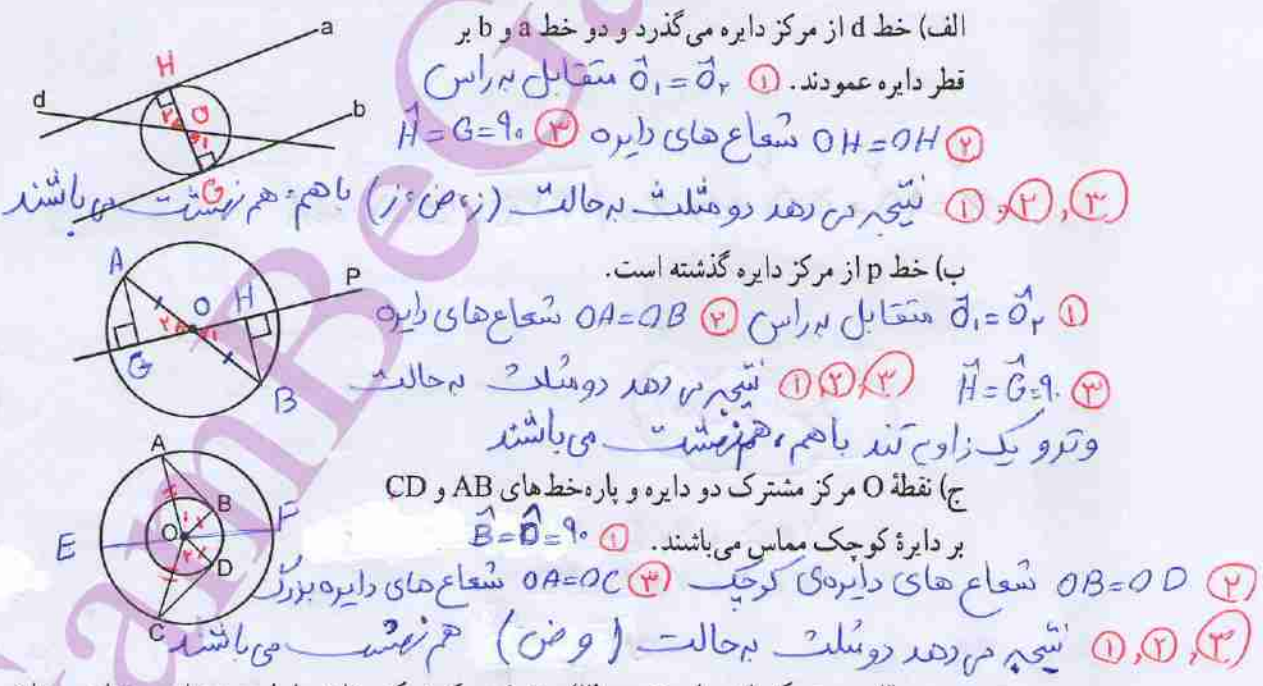 الف) خط d از مرکز دایره می‌گذرد و دو خط a و b بر
قطر دایره عمودند. ① Ô₁ = Ô₂ متقابل به راس
② OH = OH شعاع های دایره ③ Ĥ = G = ۹۰
①,②,③ نتیجه می دهد دو مثلث به حالت (ز،ض،ز) باهم، هم نهشت می باشند
a
H
d
b
۲
O
۱
G
ب) خط p از مرکز دایره گذشته است.
① Ô₁ = Ô₂ متقابل به راس ② OA = OB شعاع های دایره
③ Ĥ = Ĝ = ۹۰ ①,②,③ نتیجه می دهد دو مثلث به حالت
وتر و یک زاویه تند باهم، هم نهشت می باشند
A
O
H
P
۲
۱
G
B
ج) نقطهٔ O مرکز مشترک دو دایره و پاره‌خط‌های AB و CD
بر دایرهٔ کوچک مماس می‌باشند. ① B̂ = D̂ = ۹۰
② OB = OD شعاع های دایره‌ی کوچک ③ OA = OC شعاع های دایره بزرگ
①,②,③ نتیجه می دهد دو مثلث به حالت (و ض) هم نهشت می باشند
A
B
F
O
۱
۲
E
D
C